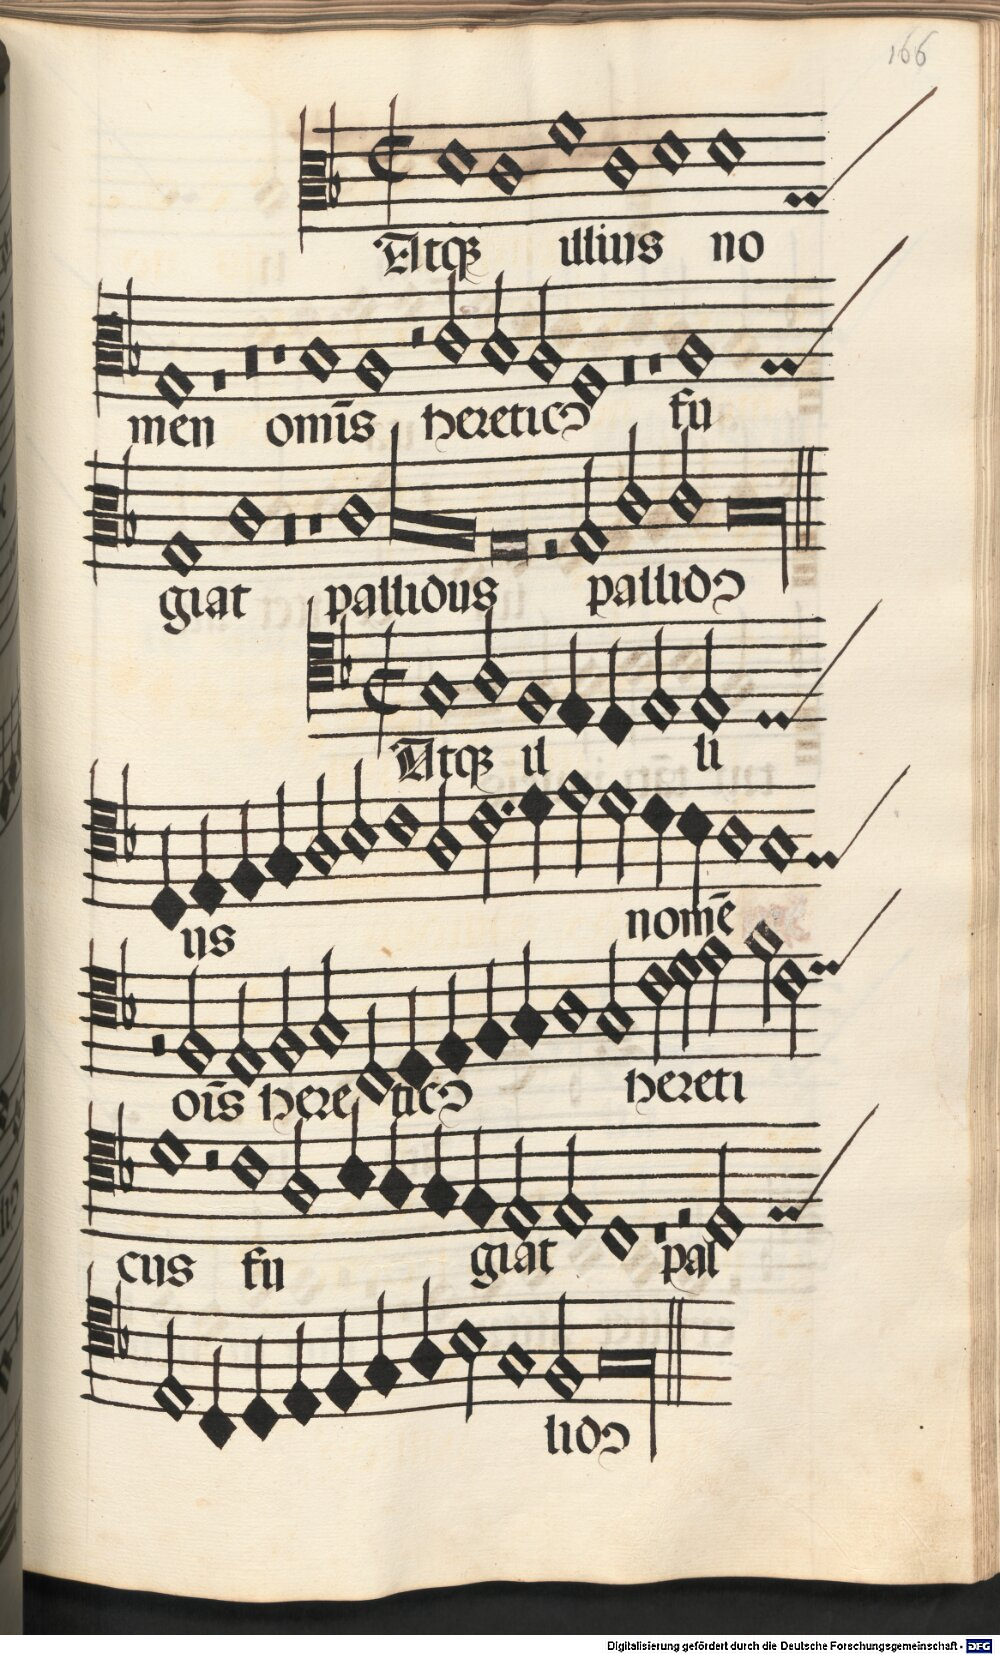 166
Atqꝫ illius no
men om̄is hereticꝰ fu
giat pallidus pallidꝰ
Atqꝫ il li
us nomē
oīs here ticꝰ hereti
cus fu giat pal
lidꝰ
Digitalisierung gefördert durch die Deutsche Forschungsgemeinschaft - DFG